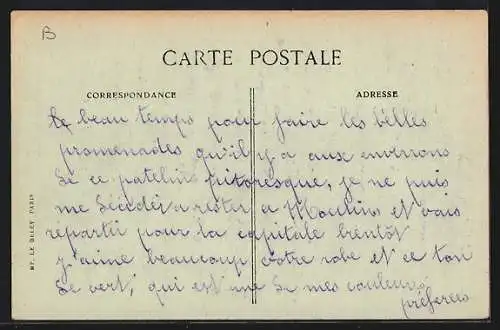 B
CARTE POSTALE
CORRESPONDANCE
ADRESSE
le beau temps pour faire les belles
promenades qu'il y a aux environs
de ce patelin pitoresque, je ne puis
me décider a rester a Moulins et vais
repartir pour la capitale bientôt
j'aime beaucoup votre robe et ce ton
de vert, qui est une de mes couleurs
préferées
LE DELEY PARIS